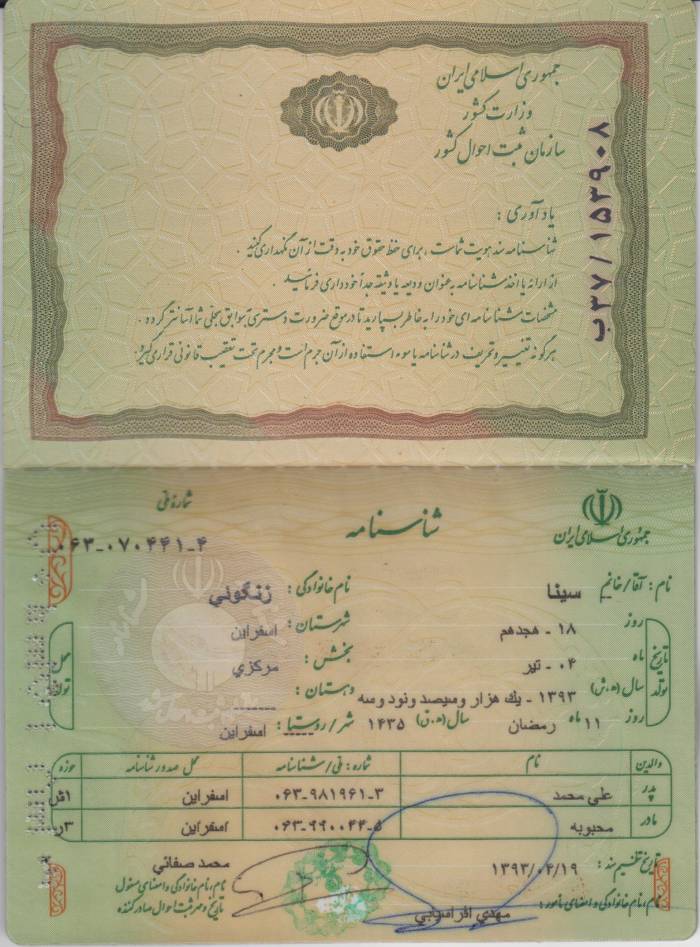 جمهوری اسلامی ایران
وزارت کشور
سازمان ثبت احوال کشور
ب۳۷/۱۵۳۹۰۸
یادآوری :
شناسنامه سند هویت شماست ، برای حفظ حقوق خود به دقت از آن نگهداری کنید .
از ارائه یا اخذ شناسنامه به عنوان ودیعه یا وثیقه جداً خودداری فرمائید .
مشخصات شناسنامه ای خود را به خاطر بسپارید تا در موقع ضرورت دسترسی به سوابق سجلی شما آسانتر گردد .
هر گونه تغییر و تحریف در شناسنامه یا سوء استفاده از آن جرم است و مجرم تحت تعقیب قانونی قرار می گیرد .
جمهوری اسلامی ایران
شناسنامه
شماره ملی
۰۶۳-۰۷۰۴۴۱-۴
نام : آقا/خانم سینا نام خانوادگی : زنگوئي
تاریخ تولد
روز ۱۸ - هجدهم شهرستان : اسفراین
ماه ۰۴ - تیر بخش : مرکزي
سال (ه.ش) ۱۳۹۳ - یك هزار وسیصد ونود وسه دهستان : -------
روز ۱۱ ماه رمضان سال (ه.ق) ۱۴۳۵ شهر/روستا : اسفراین
محل تولد
والدین نام شماره : ملی/شناسنامه محل صدور شناسنامه حوزه
پدر علي محمد ۰۶۳-۹۸۱۹۶۱-۳ اسفراین ۱ش
مادر محبوبه ۰۶۳-۹۹۰۰۴۴-۵ اسفراین ۳ر
تاریخ تنظیم سند : ۱۳۹۳/۰۴/۱۹ محمد صفائي
نام ، نام خانوادگی و امضای مأمور : مهدي افراسیابي
نام ، نام خانوادگی و امضای مسئول
تاریخ و مهر ثبت احوال صادر کننده